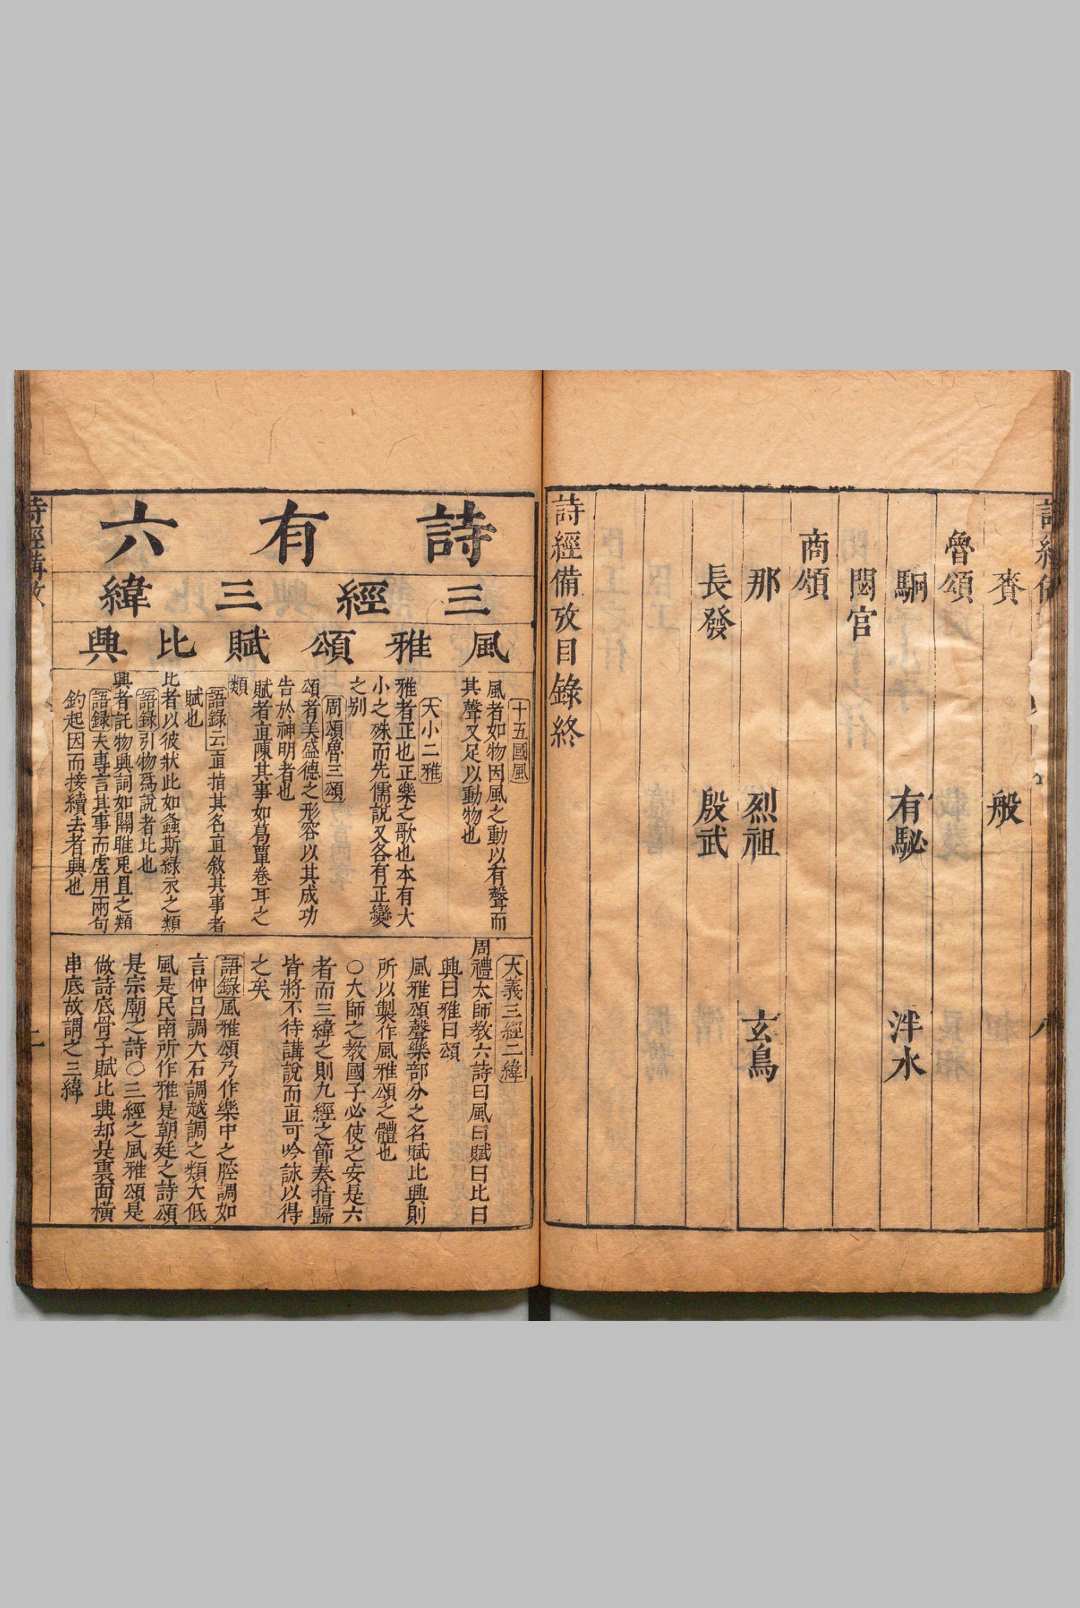 詩經備
賚 般 八
魯頌
駉 有駜 泮水
閟宮
商頌
那 烈祖 玄鳥
長發 殷武
詩經備攷目錄終
詩有六
三經三緯
風雅頌賦比興
十五國風
風者如物因風之動以有聲而
其聲又足以動物也
大小二雅
雅者正也正樂之歌也本有大
小之殊而先儒說又各有正變
之别
周頌魯三頌
頌者美盛德之形容以其成功
告於神明者也
賦者直陳其事如葛覃卷耳之
類
語錄云直指其名直敘其事者
賦也
比者以彼狀此如螽斯綠衣之類
語錄引物爲說者比也
興者託物興詞如關雎兎罝之類
語錄夫專言其事而虛用兩句
鈎起因而接續去者興也
大義三經二緯
周禮太師教六詩曰風曰賦曰比曰
興曰雅曰頌
風雅頌聲樂部分之名賦比興則
所以製作風雅頌之體也
〇大師之教國子必使之安是六
者而三緯之則凡經之節奏指歸
皆將不待講說而直可吟詠以得
之矣
語錄風雅頌乃作樂中之腔調如
言仲呂調大石調越調之類大低
風是民南所作雅是朝廷之詩頌
是宗廟之詩〇三經之風雅頌是
做詩底骨子賦比興却是裏面橫
串底故謂之三緯
詩經講